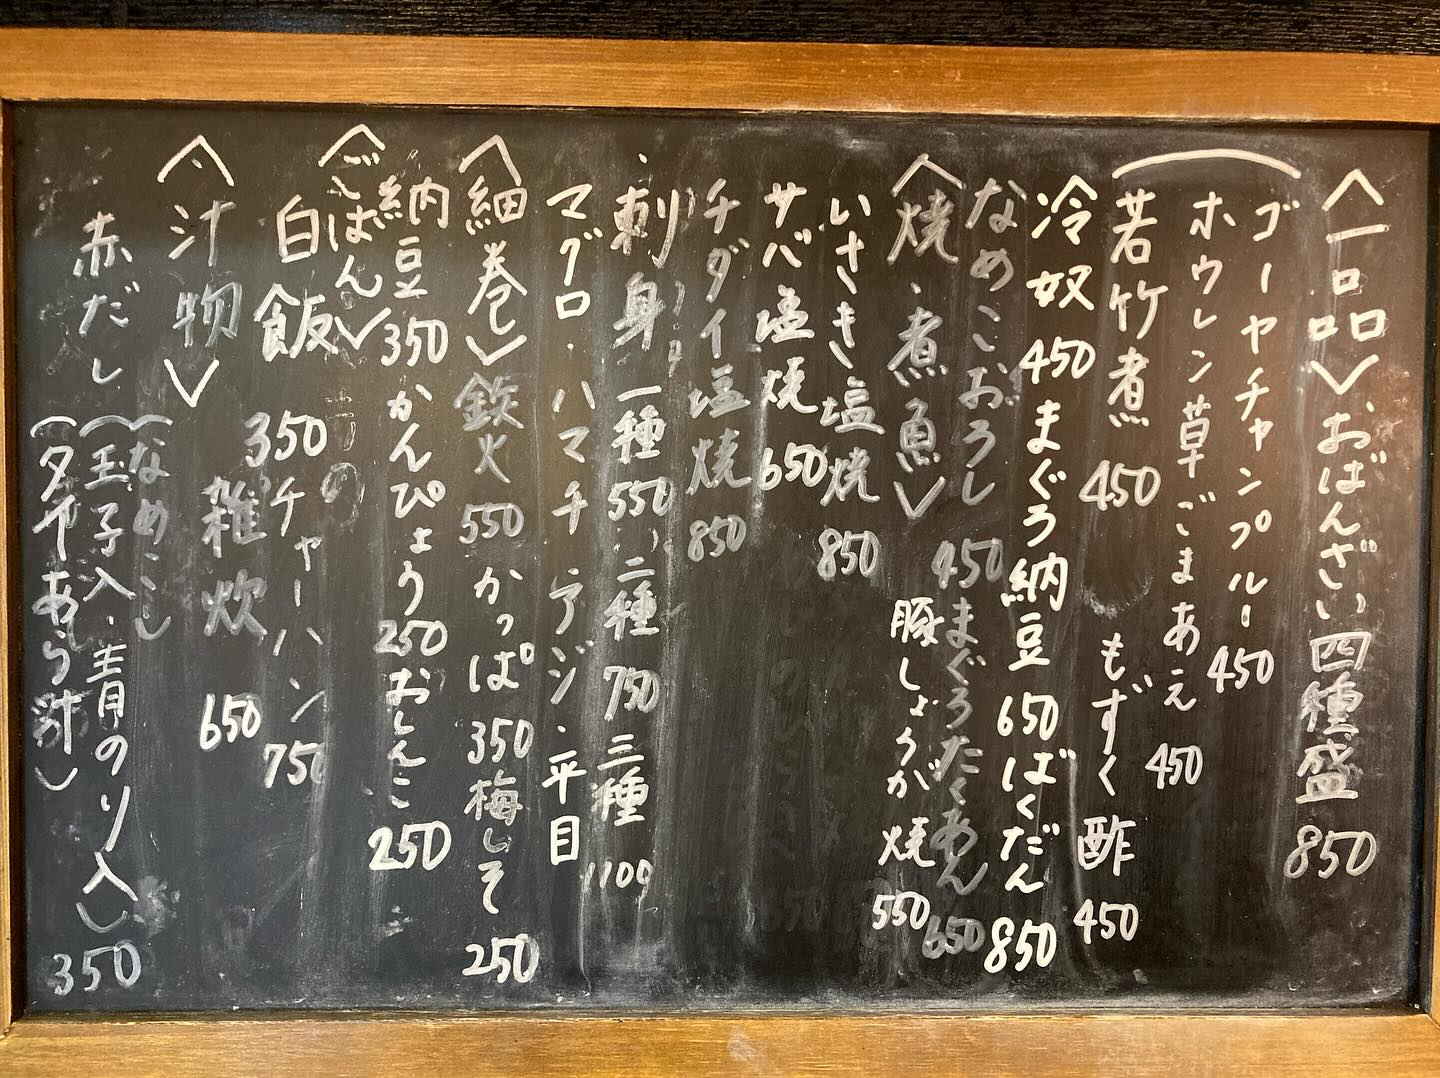 〈一品〉おばんざい四種盛 850
ゴーヤチャンプルー 450
ホウレン草ごまあえ 450
若竹煮 450 もずく酢 450
冷奴 450 まぐろ納豆 650 ばくだん 850
なめこおろし 450 まぐろたくあん 650
〈焼、煮魚〉 豚しょうが焼 550
いさき塩焼 850
サバ塩焼 650
チダイ塩焼 850
刺身 一種 550、二種 750 三種 1100
マグロ・ハマチ・アジ・平目
〈細巻〉鉄火 550 かっぱ 350 梅しそ 250
納豆 350 かんぴょう 250 おしんこ 250
〈ごはん〉
白飯 350 チャーハン 750
雑炊 650
〈汁物〉
赤だし
(なめこ)
(玉子入・青のり入) 350
(タイあら汁)